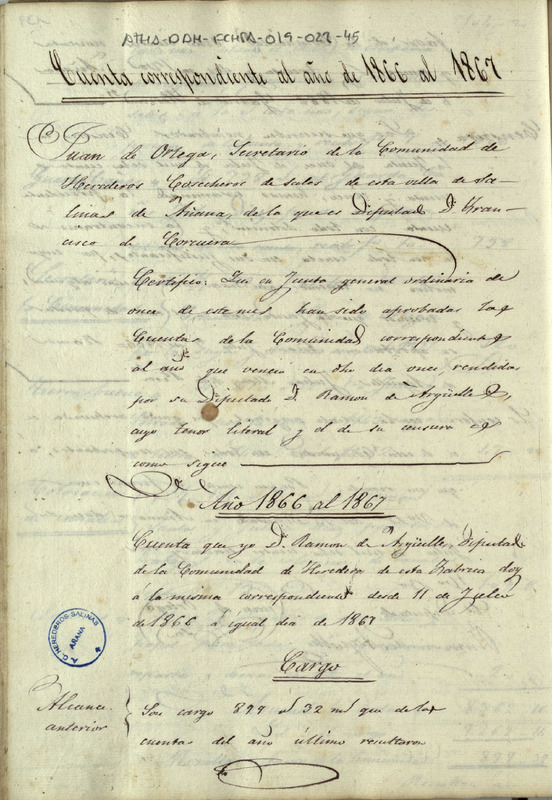 ATHA-DAH-FCHSA-019-022-45
Cuenta correspondiente al año de 1866 al 1867
Juan de Ortega, Secretario de la Comunidad de
Herederos Cosecheros de sales de esta villa de Sa-
linas de Añana, de la que es Diputado D. Fran-
cisco de Corcuera
Certifico: Que en Junta general ordinaria de
once de este mes, han sido aprobadas las
Cuentas de la Comunidad correspondientes
al año que venció en dho dia once, rendidas
por su Diputado D. Ramon de Argüelles,
cuyo tenor literal y el de su censura es
como sigue
Año 1866 al 1867
Cuenta que yo D. Ramon de Argüelles, Diputado
de la Comunidad de Herederos de esta Fabrica doy
a la misma correspondiente desde 11 de Julio
de 1866 a igual dia de 1867
Cargo
Alcance
anterior
Son cargo 897 rs 32 ms que de las
cuentas del año último resultaron
A. C. HEREDEROS SALINAS
AÑANA